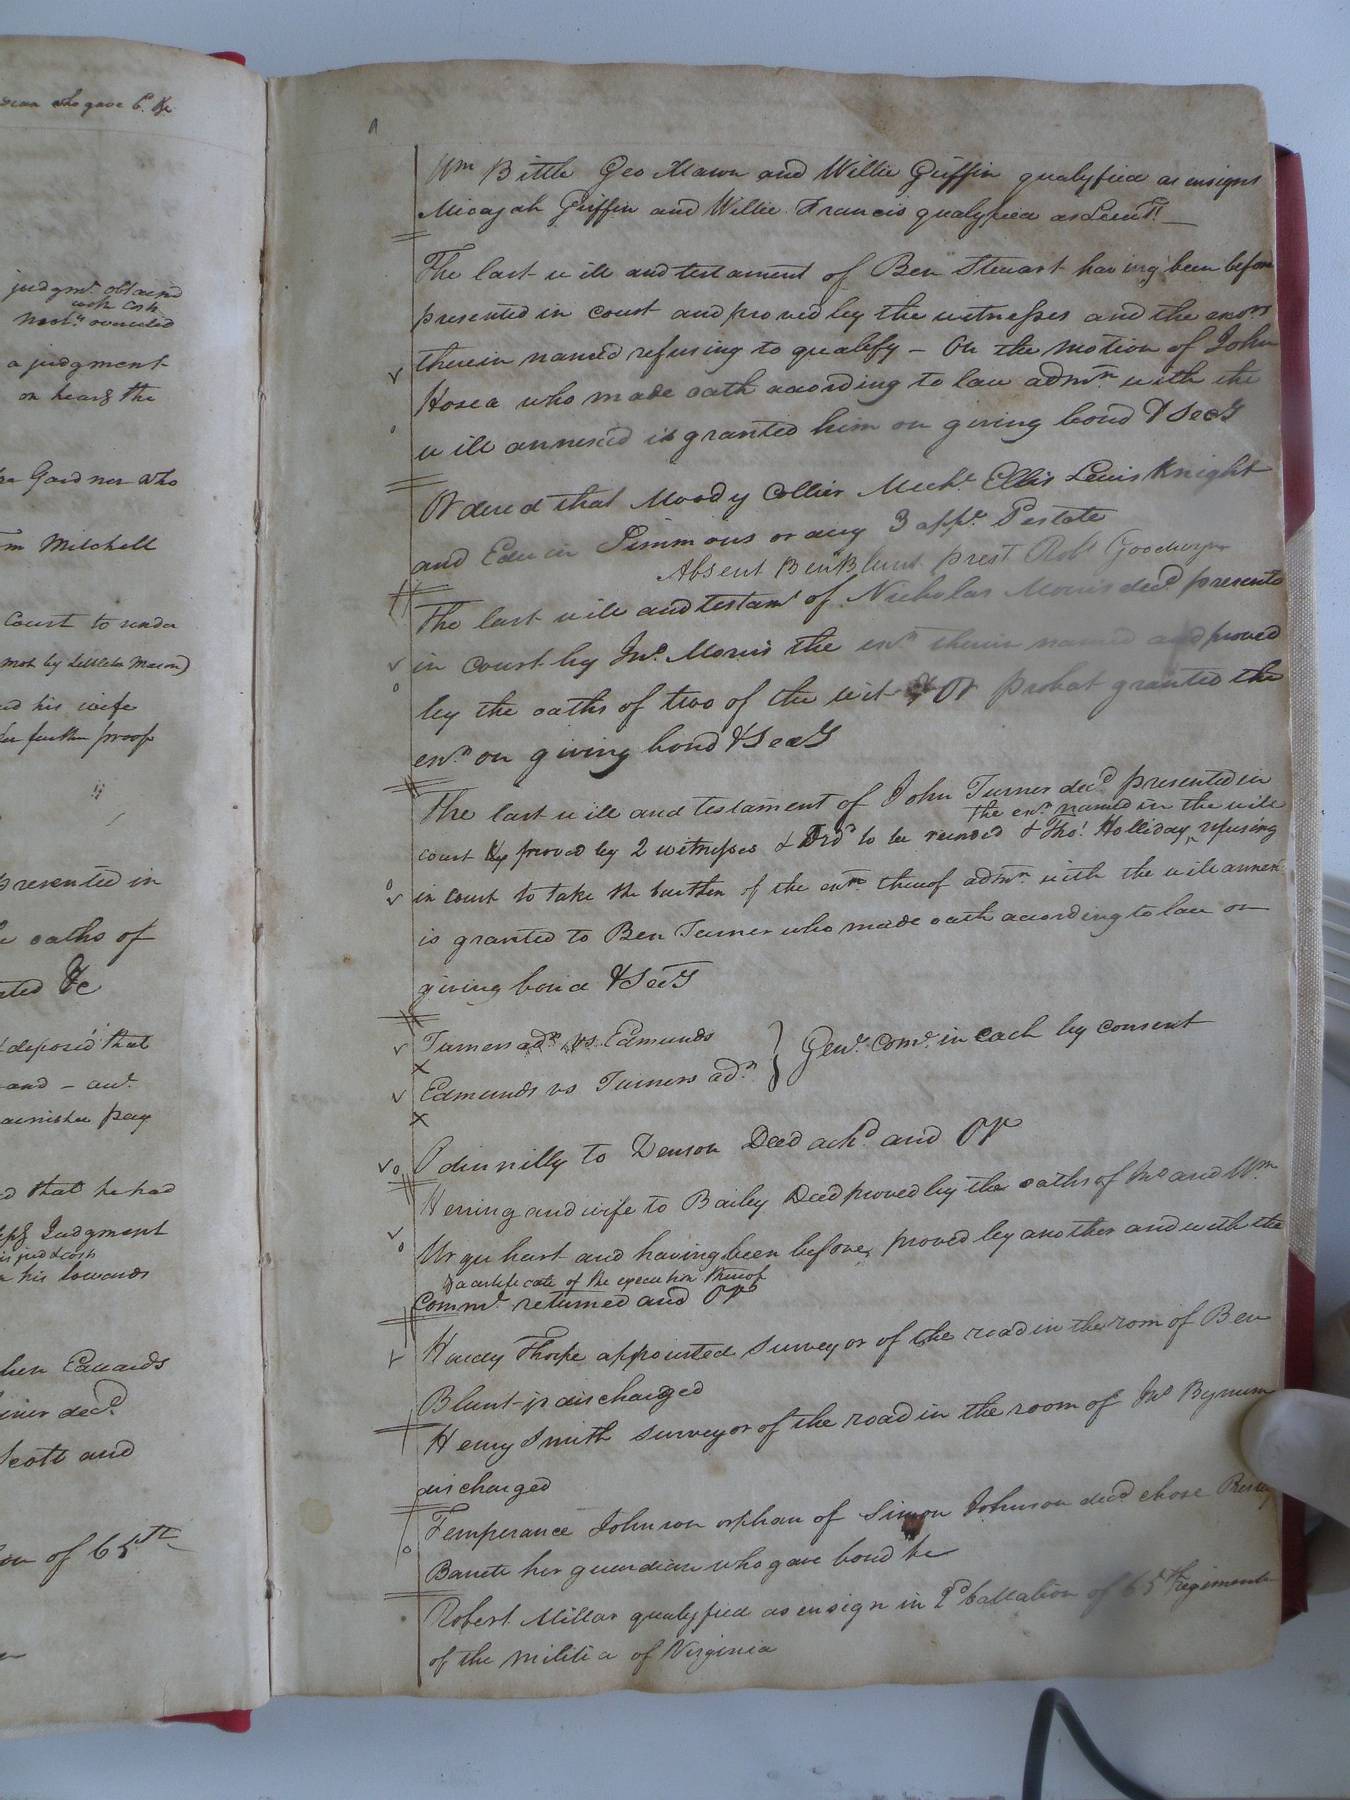 who gave bd. &c
judgmt. obtained
with Cost
a judgment
on hearg the
Gardner who
Mitchell
Court to
not by Littleton Mason)
his wife
further proof
presented in
oaths of
&c
deposed that
and - awd.
garnishee pay
that he had
Judgment
his
Edwards
decd.
Scott and
of 65th
Wm Bittle Geo Mason and Willie Griffin qualyfied as ensigns
Micajah Griffin and Willie Francis qualyfied as Lieuts.
The last will and testament of Ben Stewart having been before
presented in court and proved by the witnesses and the exors
therein named refusing to qualify - On the motion of John
Hosea who made oath acording to law admn. with the
will annexed is granted him on giving bond & Secy
Ordered that Moody Collier Michl. Ellis Lewis Knight
and Edwin Simmons or any 3 appe. Pestate
Absent Ben Blunt prest Robt Goodwyn
The last will and testamt of Nicholas Morris decd. presente
in court by Jno. Morris the exn. therein named and proved
by the oaths of two of the wit & Or probat granted the
exn. on giving bond & Secy
The last will and testament of John Turner decd. presented in
the exr. named in the will
court by proved by 2 witnesses & Ord to be recorded & Tho: Holliday, refusing
in court to take the burthen of the exn. thereof admn. with the will annex
is granted to Ben Turner who made oath acording to law on
giving bond & Secy
Turners adr. vs. Edmunds
Edmunds vs Turners adr.
Genl. Comn. in each by consent
to Denson Deed ackd. and Or
Herring and wife to Bailey Deed proved by the oaths of Jno and Wm
Urquhart and having been before, proved by another and with the
& a certificate of the execution thereof
Comm. returned and Or
Hardy Thorpe appointed Surveyor of the road in the room of Ben
Blunt jr discharged
Henry Smith surveyor of the road in the room of Jno Bynum
discharged
Temperance Johnson orphan of Simon Johnson decd chose
Barrett her guardian who gave bond &c
Robert Millar qualyfied as ensign in 2d battalion of 65th regiment
of the militia of Virginia